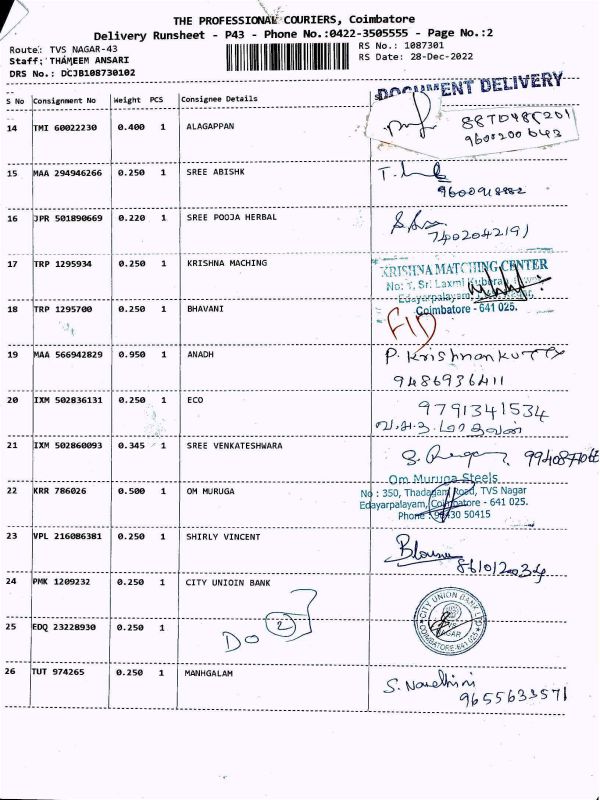 THE PROFESSIONAL COURIERS, Coimbatore
Delivery Runsheet - P43 - Phone No.:0422-3505555 - Page No.:2
Route: TVS NAGAR-43
RS No.: 1087301
Staff: THAMEEM ANSARI
RS Date: 28-Dec-2022
DRS No.: DCJB108730102
DOCUMENT DELIVERY
S No Consignment No Weight PCS Consignee Details
14 TMI 60022230 0.400 1 ALAGAPPAN
9600200643
15 MAA 294946266 0.250 1 SREE ABISHK
9600918882
16 JPR 501890669 0.220 1 SREE POOJA HERBAL
7402042191
17 TRP 1295934 0.250 1 KRISHNA MACHING
KRISHNA MATCHING CENTER
No: 1, Sri Laxmi Kuberan
Edayarpalayam,
Coimbatore - 641 025.
18 TRP 1295700 0.250 1 BHAVANI
19 MAA 566942829 0.950 1 ANADH
P. Krishnankutty
9486936411
20 IXM 502836131 0.250 1 ECO
9791341534
21 IXM 502860093 0.345 1 SREE VENKATESHWARA
22 KRR 786026 0.500 1 OM MURUGA
Om Muruga Steels
No : 350, Thadagam Road, TVS Nagar
Edayarpalayam, Coimbatore - 641 025.
Phone : 98430 50415
23 VPL 216086381 0.250 1 SHIRLY VINCENT
24 PMK 1209232 0.250 1 CITY UNIOIN BANK
CITY UNION BANK LTD
TVS NAGAR
COIMBATORE-641 025
25 EDQ 23228930 0.250 1
DO 2
26 TUT 974265 0.250 1 MANHGALAM
S. Nandhini
9655633571